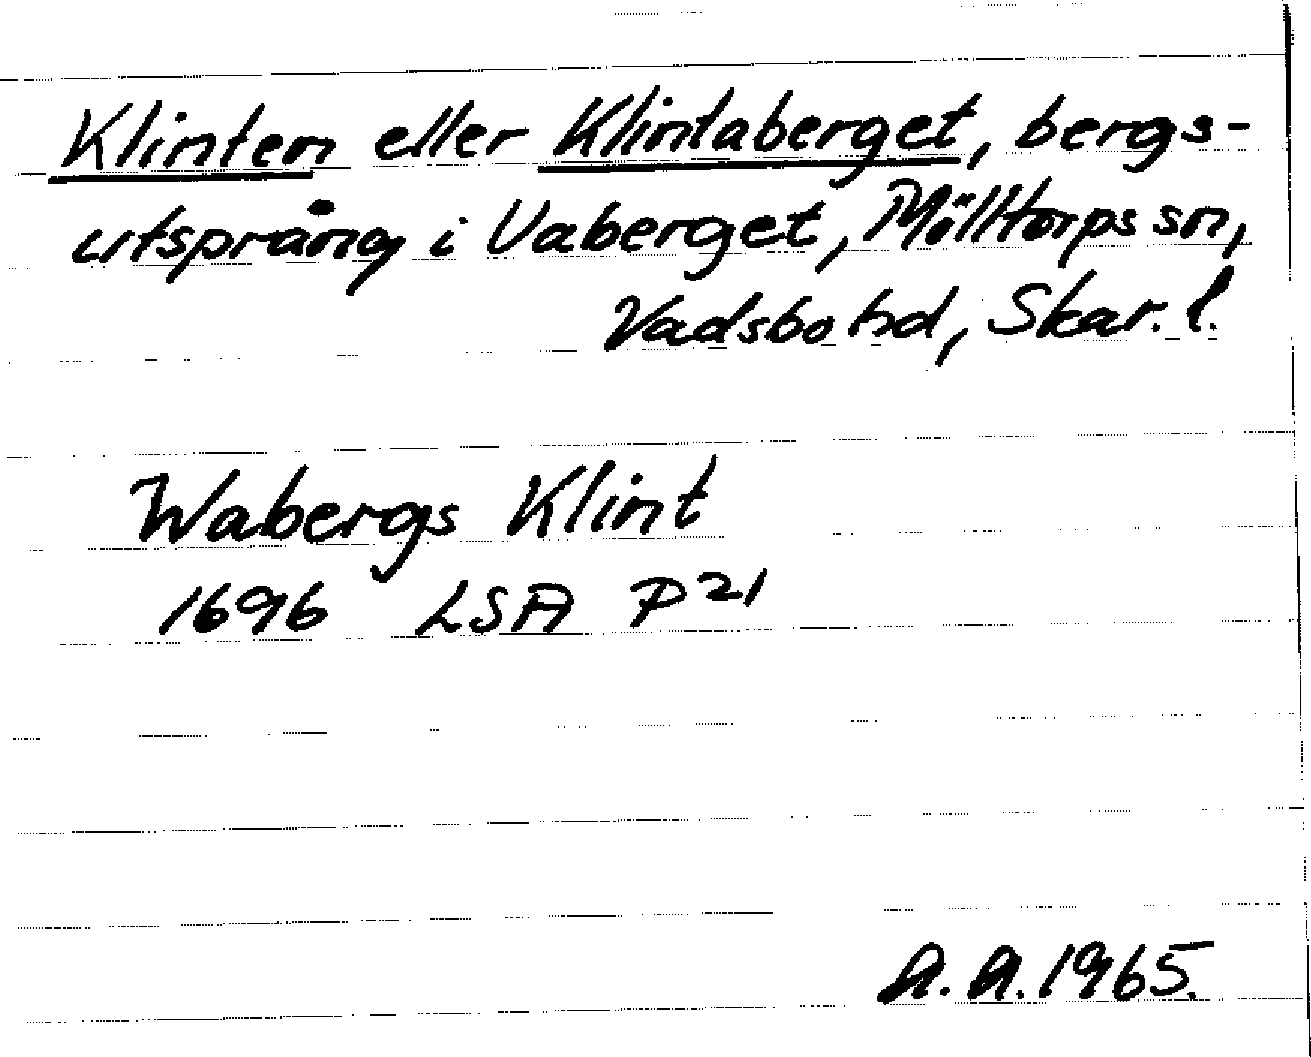 Klinten eller Klintaberget, bergs-
utsprång i Vaberget, Mölltorps sn,
Vadsbo hd, Skar. l.
Wabergs Klint
1696 LSA P21
A.A. 1965.